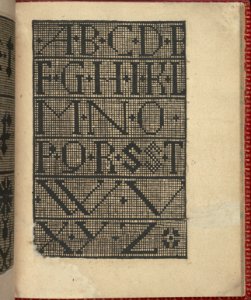 A·B·C·D·E
F·G·H·I·K·L
M·N·O
P·Q·R·S·T
V V
X Y Z